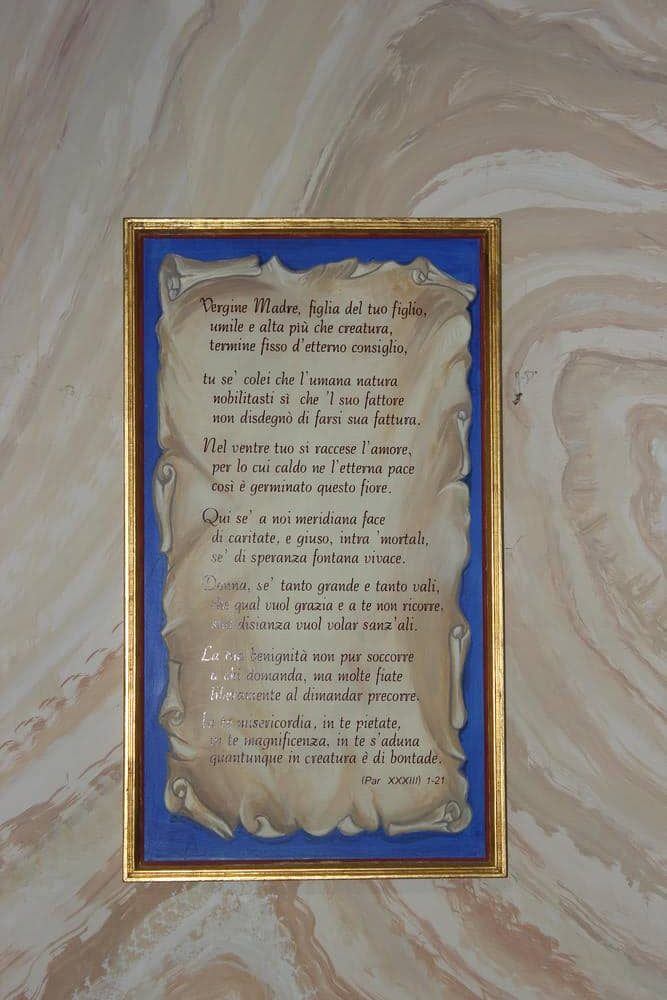 Vergine Madre, figlia del tuo figlio,
umile e alta più che creatura,
termine fisso d'etterno consiglio,
tu se' colei che l'umana natura
nobilitasti sì che 'l suo fattore
non disdegnò di farsi sua fattura.
Nel ventre tuo si raccese l'amore,
per lo cui caldo ne l'etterna pace
così è germinato questo fiore.
Qui se' a noi meridiana face
di caritate, e giuso, intra 'mortali,
se' di speranza fontana vivace.
Donna, se' tanto grande e tanto vali,
che qual vuol grazia e a te non ricorre,
sua disianza vuol volar sanz'ali.
La tua benignità non pur soccorre
a chi domanda, ma molte fiate
liberamente al dimandar precorre.
In te misericordia, in te pietate,
in te magnificenza, in te s'aduna
quantunque in creatura è di bontade.
(Par XXXIII) 1-21